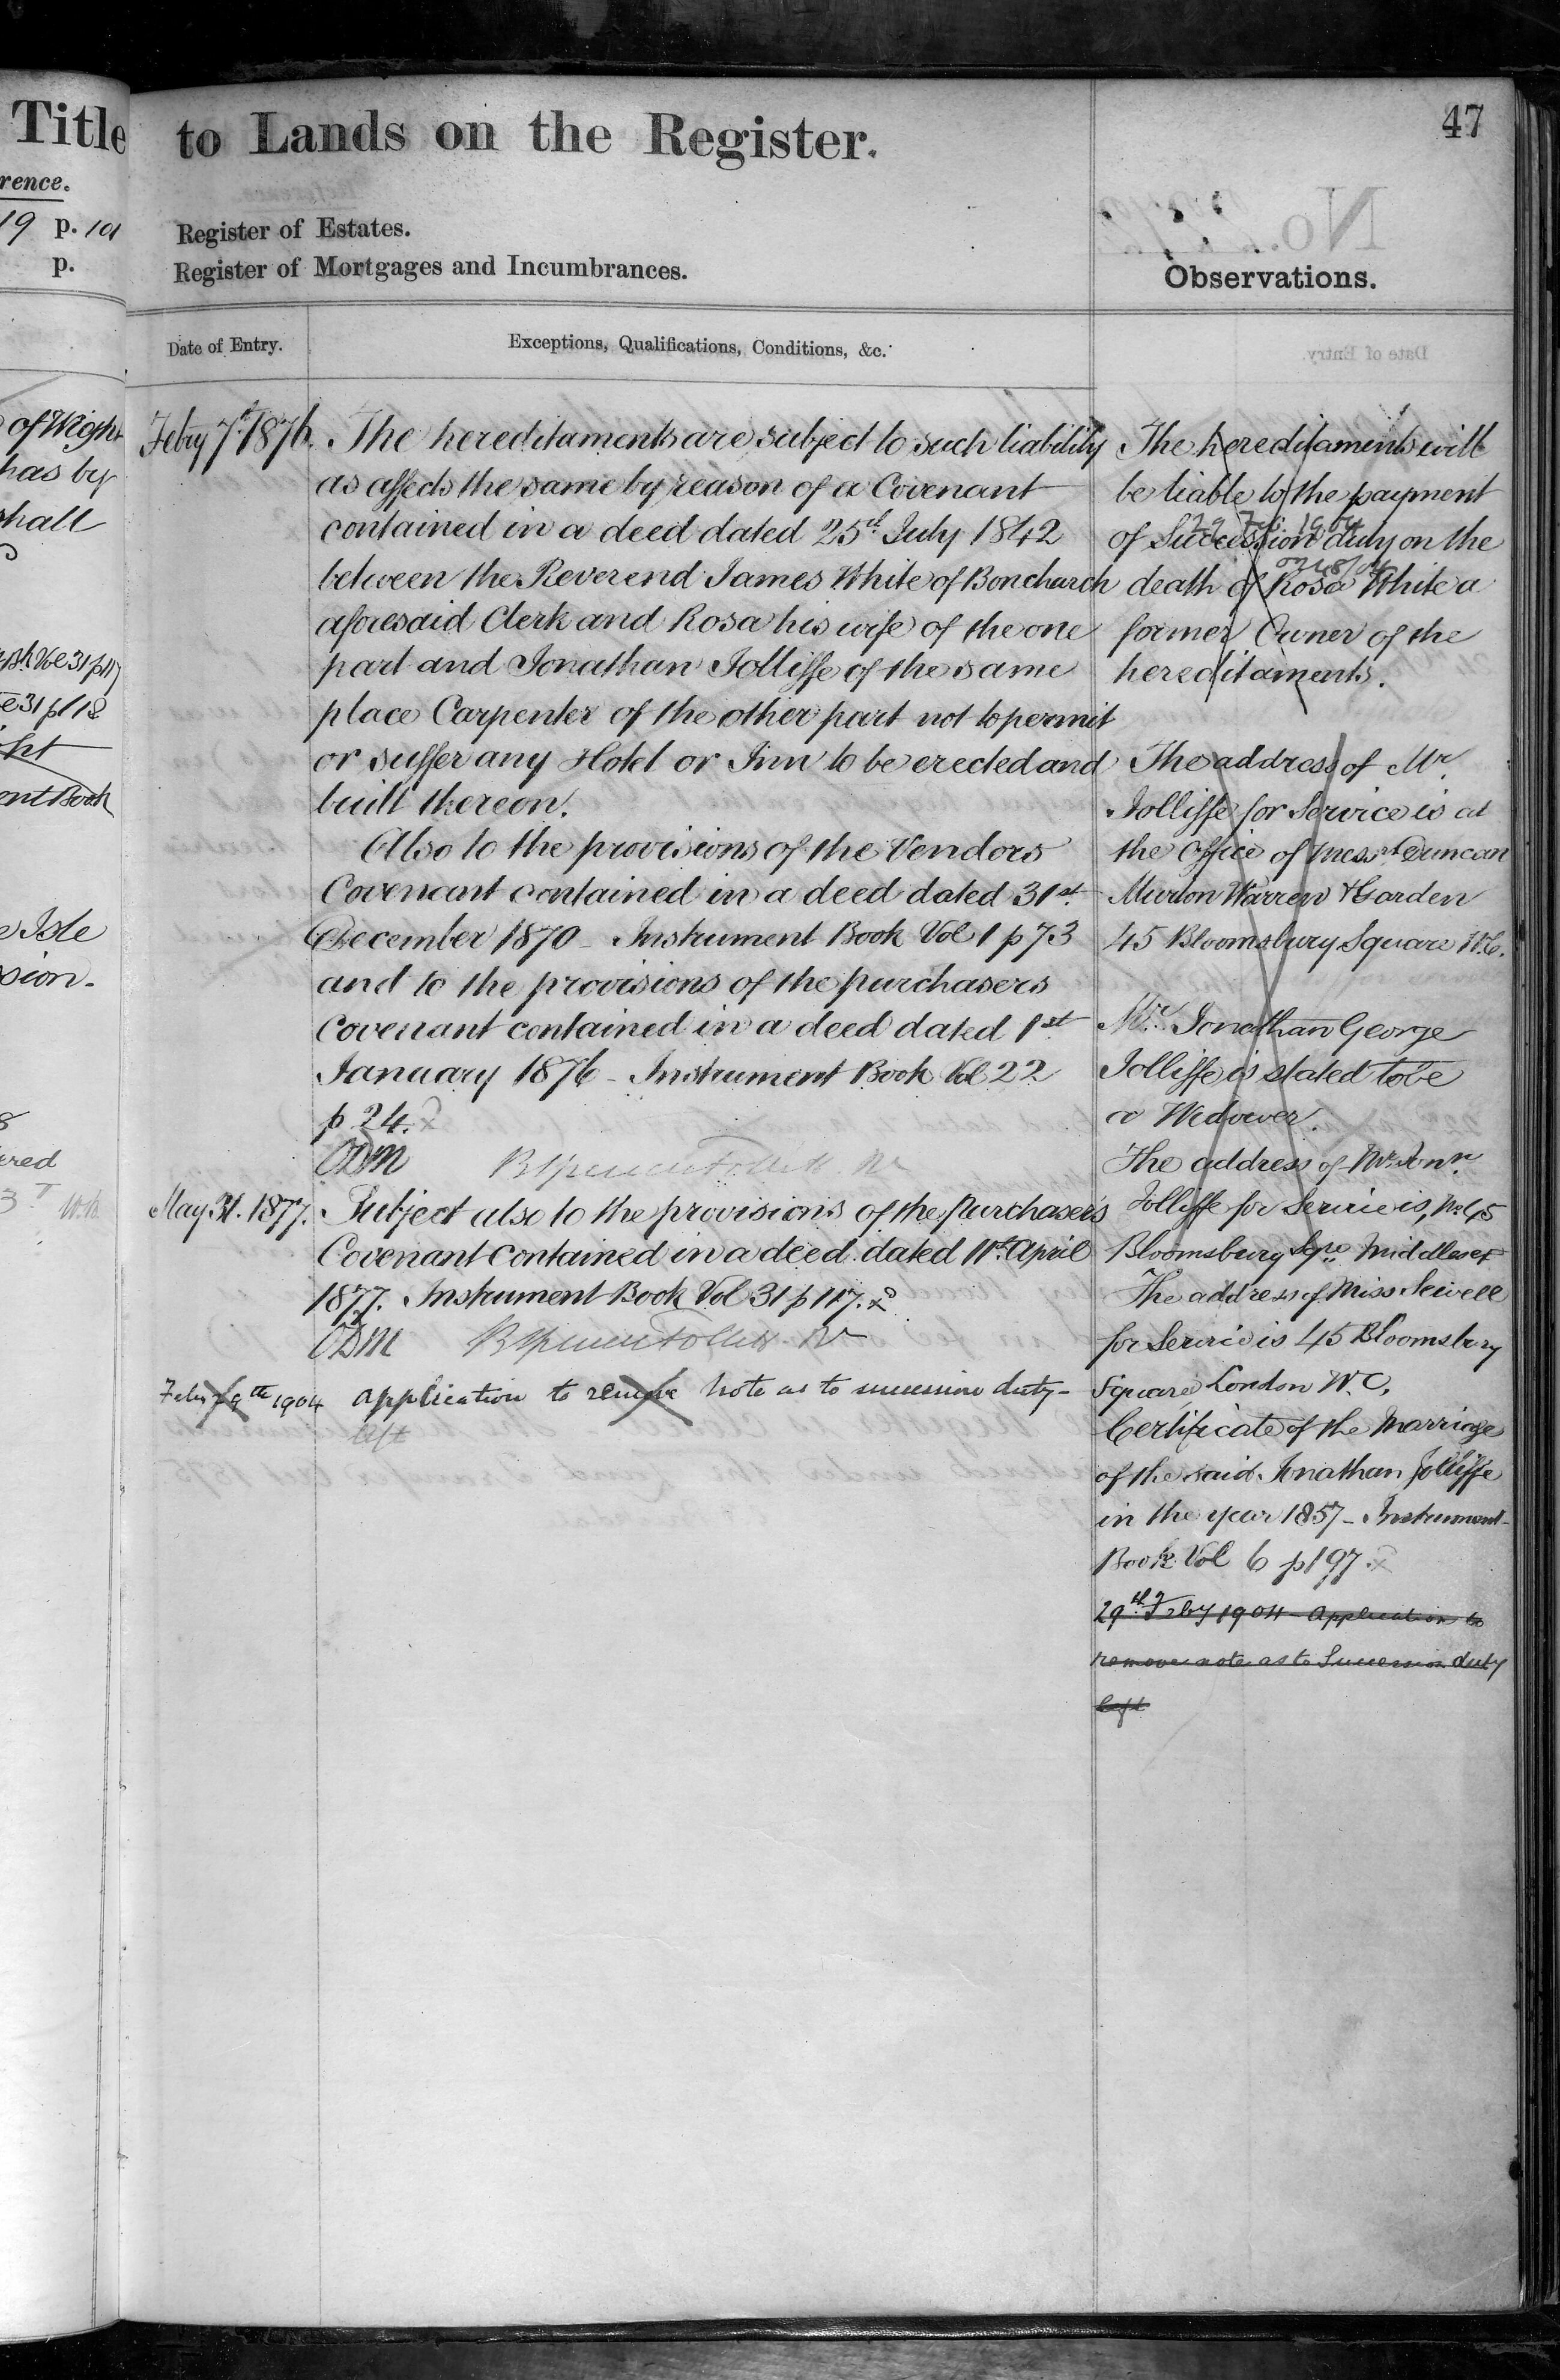 Title
rence.
19 p. 101
p.
of Wight
has by
shall
31 p 117
31 p 118
ent Book
e Isle
sion.
8
ered
to Lands on the Register.
47
Register of Estates.
Register of Mortgages and Incumbrances.
Observations.
Date of Entry.
Exceptions, Qualifications, Conditions, &c.
Feby 7th 1876.
The hereditaments are subject to such liability
as affects the same by reason of a Covenant
contained in a deed dated 25th July 1842
between the Reverend James White of Bonchurch
aforesaid Clerk and Rosa his wife of the one
part and Jonathan Jolliffe of the same
place Carpenter of the other part not to permit
or suffer any Hotel or Inn to be erected and
built thereon.
Also to the provisions of the Vendors
Covenant contained in a deed dated 31st
December 1870 - Instrument Book Vol 1 p 73
and to the provisions of the purchasers
Covenant contained in a deed dated 1st
January 1876 - Instrument Book Vol 22
p 24.
May 31. 1877.
Subject also to the provisions of the Purchaser's
Covenant contained in a deed dated 11th April
1877. Instrument Book Vol 31 p 117.
Feby 29th 1904
Application to remove note as to succession duty -
left
The hereditaments will
be liable to the payment
29 Feb. 1904
of Succession duty on the
0248/04
death of Rosa White a
former Owner of the
hereditaments.
The address of Mr.
Jolliffe for Service is at
the Office of Messrs Duncan
Murton Warren & Garden
45 Bloomsbury Square W.C.
Mr. Jonathan George
Jolliffe is stated to be
a Widower.
The address of Mr. Jonn.
Jolliffe for Service is, No 45
Bloomsbury Sqre Middlesex
The address of Miss Sewell
for Service is 45 Bloomsbury
Square London W.C.
Certificate of the Marriage
of the said Jonathan Jolliffe
in the year 1857 - Instrument
Book Vol 6 p 197.
29th Feby 1904 - Application to
remove note as to Succession duty
left